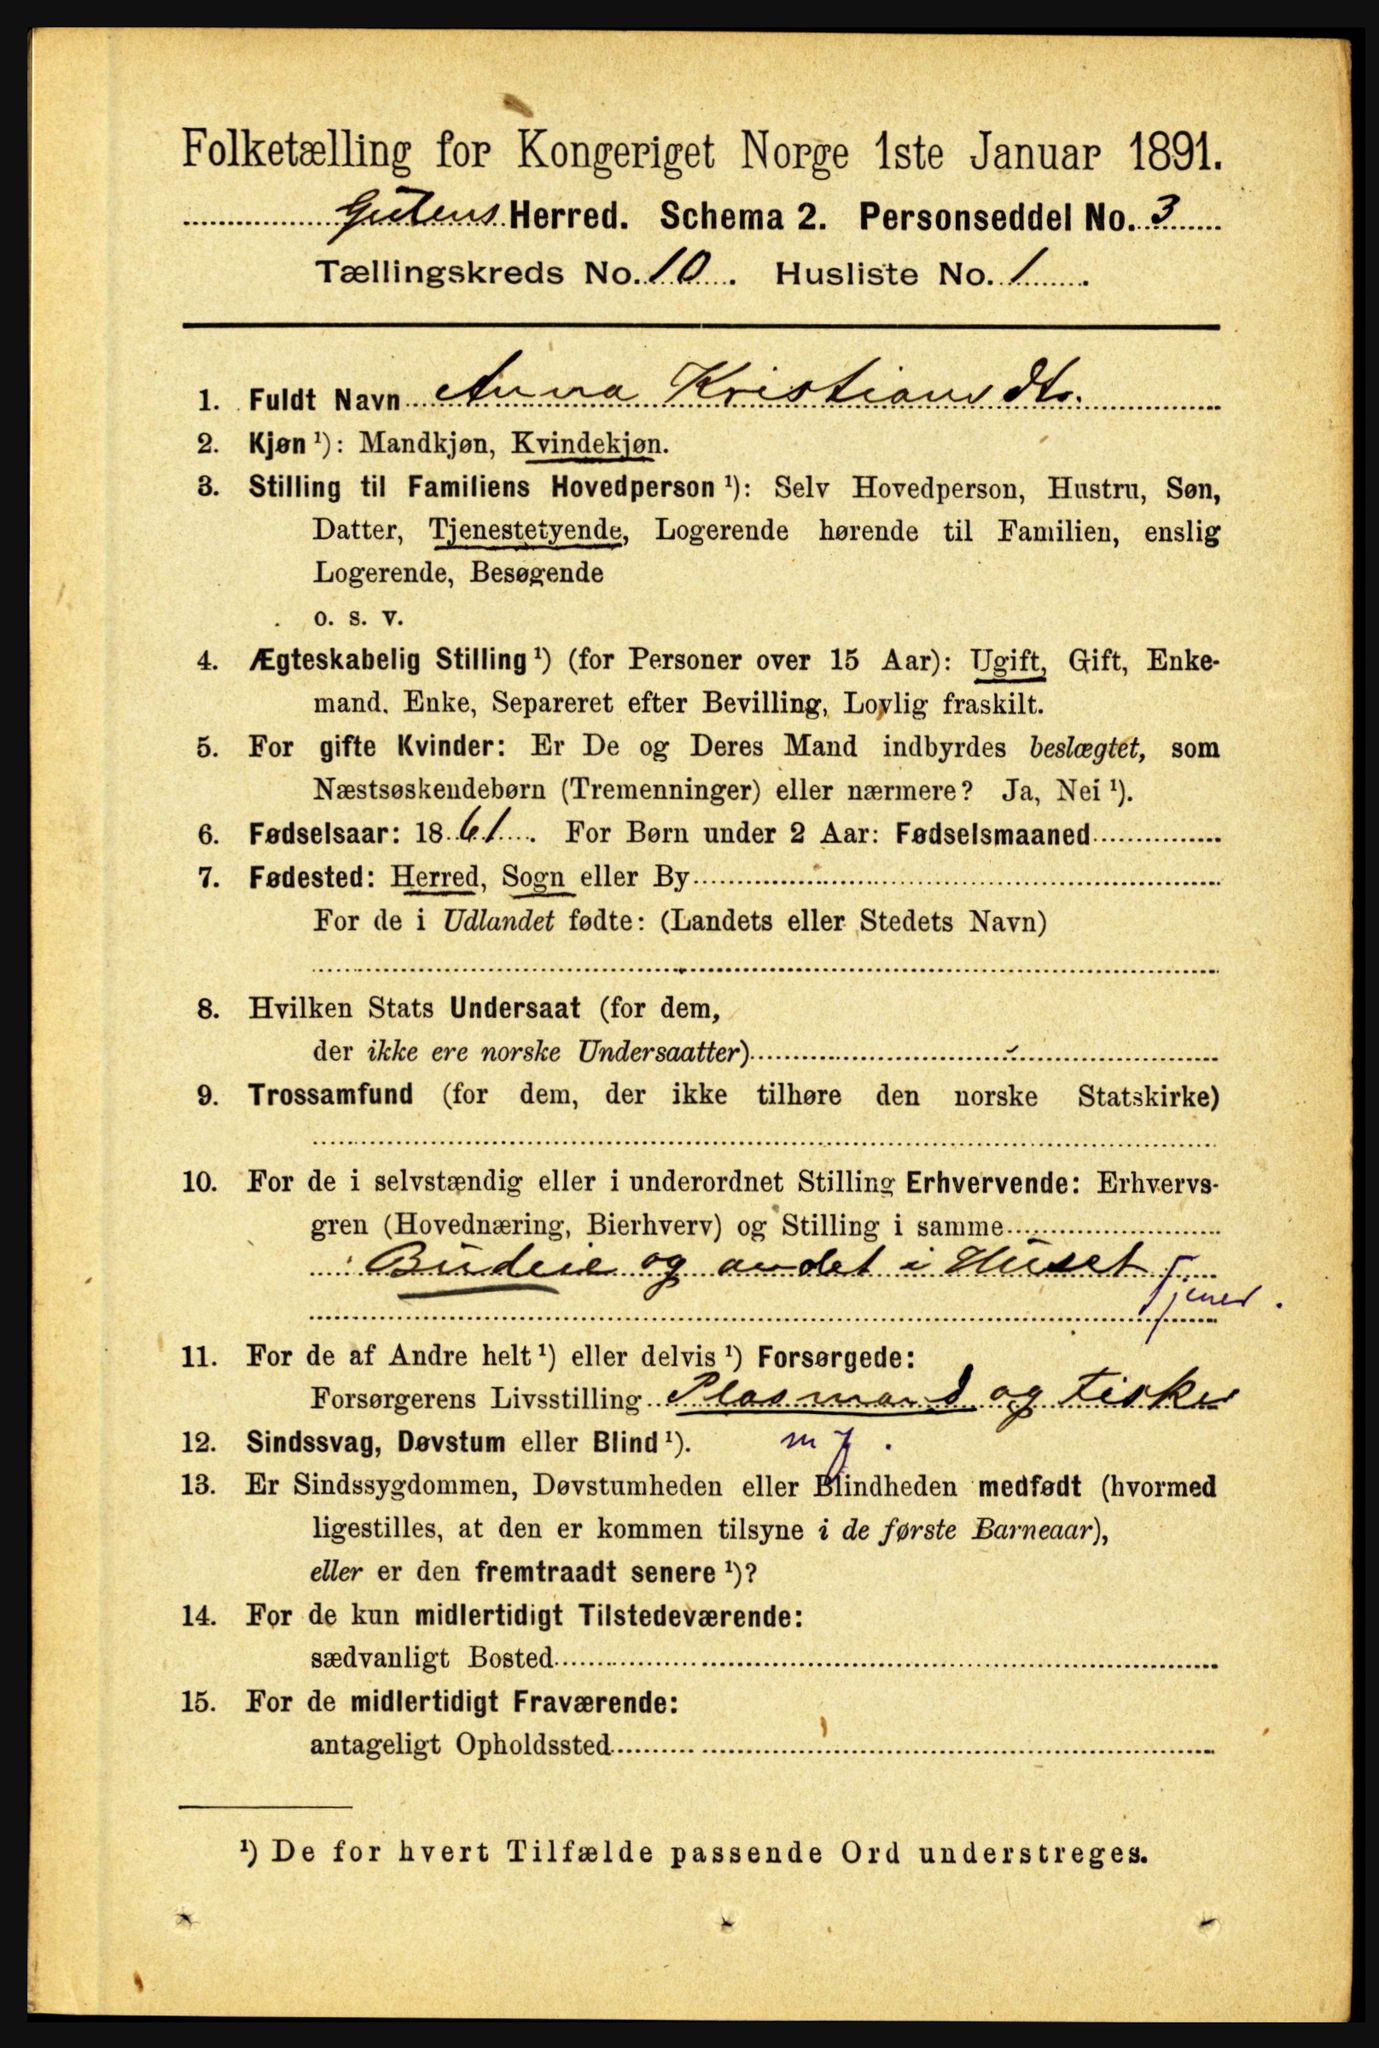 Folketælling for Kongeriget Norge 1ste Januar 1891.
Gulens Herred. Schema 2. Personseddel No. 3
Tællingskreds No. 10. Husliste No. 1.
1. Fuldt Navn Anna Kristiansdtr.
2. Kjøn ¹): Mandkjøn, Kvindekjøn.
3. Stilling til Familiens Hovedperson ¹): Selv Hovedperson, Hustru, Søn,
Datter, Tjenestetyende, Logerende hørende til Familien, enslig
Logerende, Besøgende
o. s. v.
4. Ægteskabelig Stilling ¹) (for Personer over 15 Aar): Ugift, Gift, Enke-
mand, Enke, Separeret efter Bevilling, Lovlig fraskilt.
5. For gifte Kvinder: Er De og Deres Mand indbyrdes beslægtet, som
Næstsøskendebørn (Tremenninger) eller nærmere? Ja, Nei ¹).
6. Fødselsaar: 1861. For Børn under 2 Aar: Fødselsmaaned
7. Fødested: Herred, Sogn eller By
For de i Udlandet fødte: (Landets eller Stedets Navn)
8. Hvilken Stats Undersaat (for dem,
der ikke ere norske Undersaatter)
9. Trossamfund (for dem, der ikke tilhøre den norske Statskirke)
10. For de i selvstændig eller i underordnet Stilling Erhvervende: Erhvervs-
gren (Hovednæring, Bierhverv) og Stilling i samme
Budeie og andet i Huset
Tjener.
11. For de af Andre helt ¹) eller delvis ¹) Forsørgede:
Forsørgerens Livsstilling Plasmand og Fisker
12. Sindssvag, Døvstum eller Blind ¹). m j.
13. Er Sindssygdommen, Døvstumheden eller Blindheden medfødt (hvormed
ligestilles, at den er kommen tilsyne i de første Barneaar),
eller er den fremtraadt senere ¹)?
14. For de kun midlertidigt Tilstedeværende:
sædvanligt Bosted
15. For de midlertidigt Fraværende:
antageligt Opholdssted
¹) De for hvert Tilfælde passende Ord understreges.